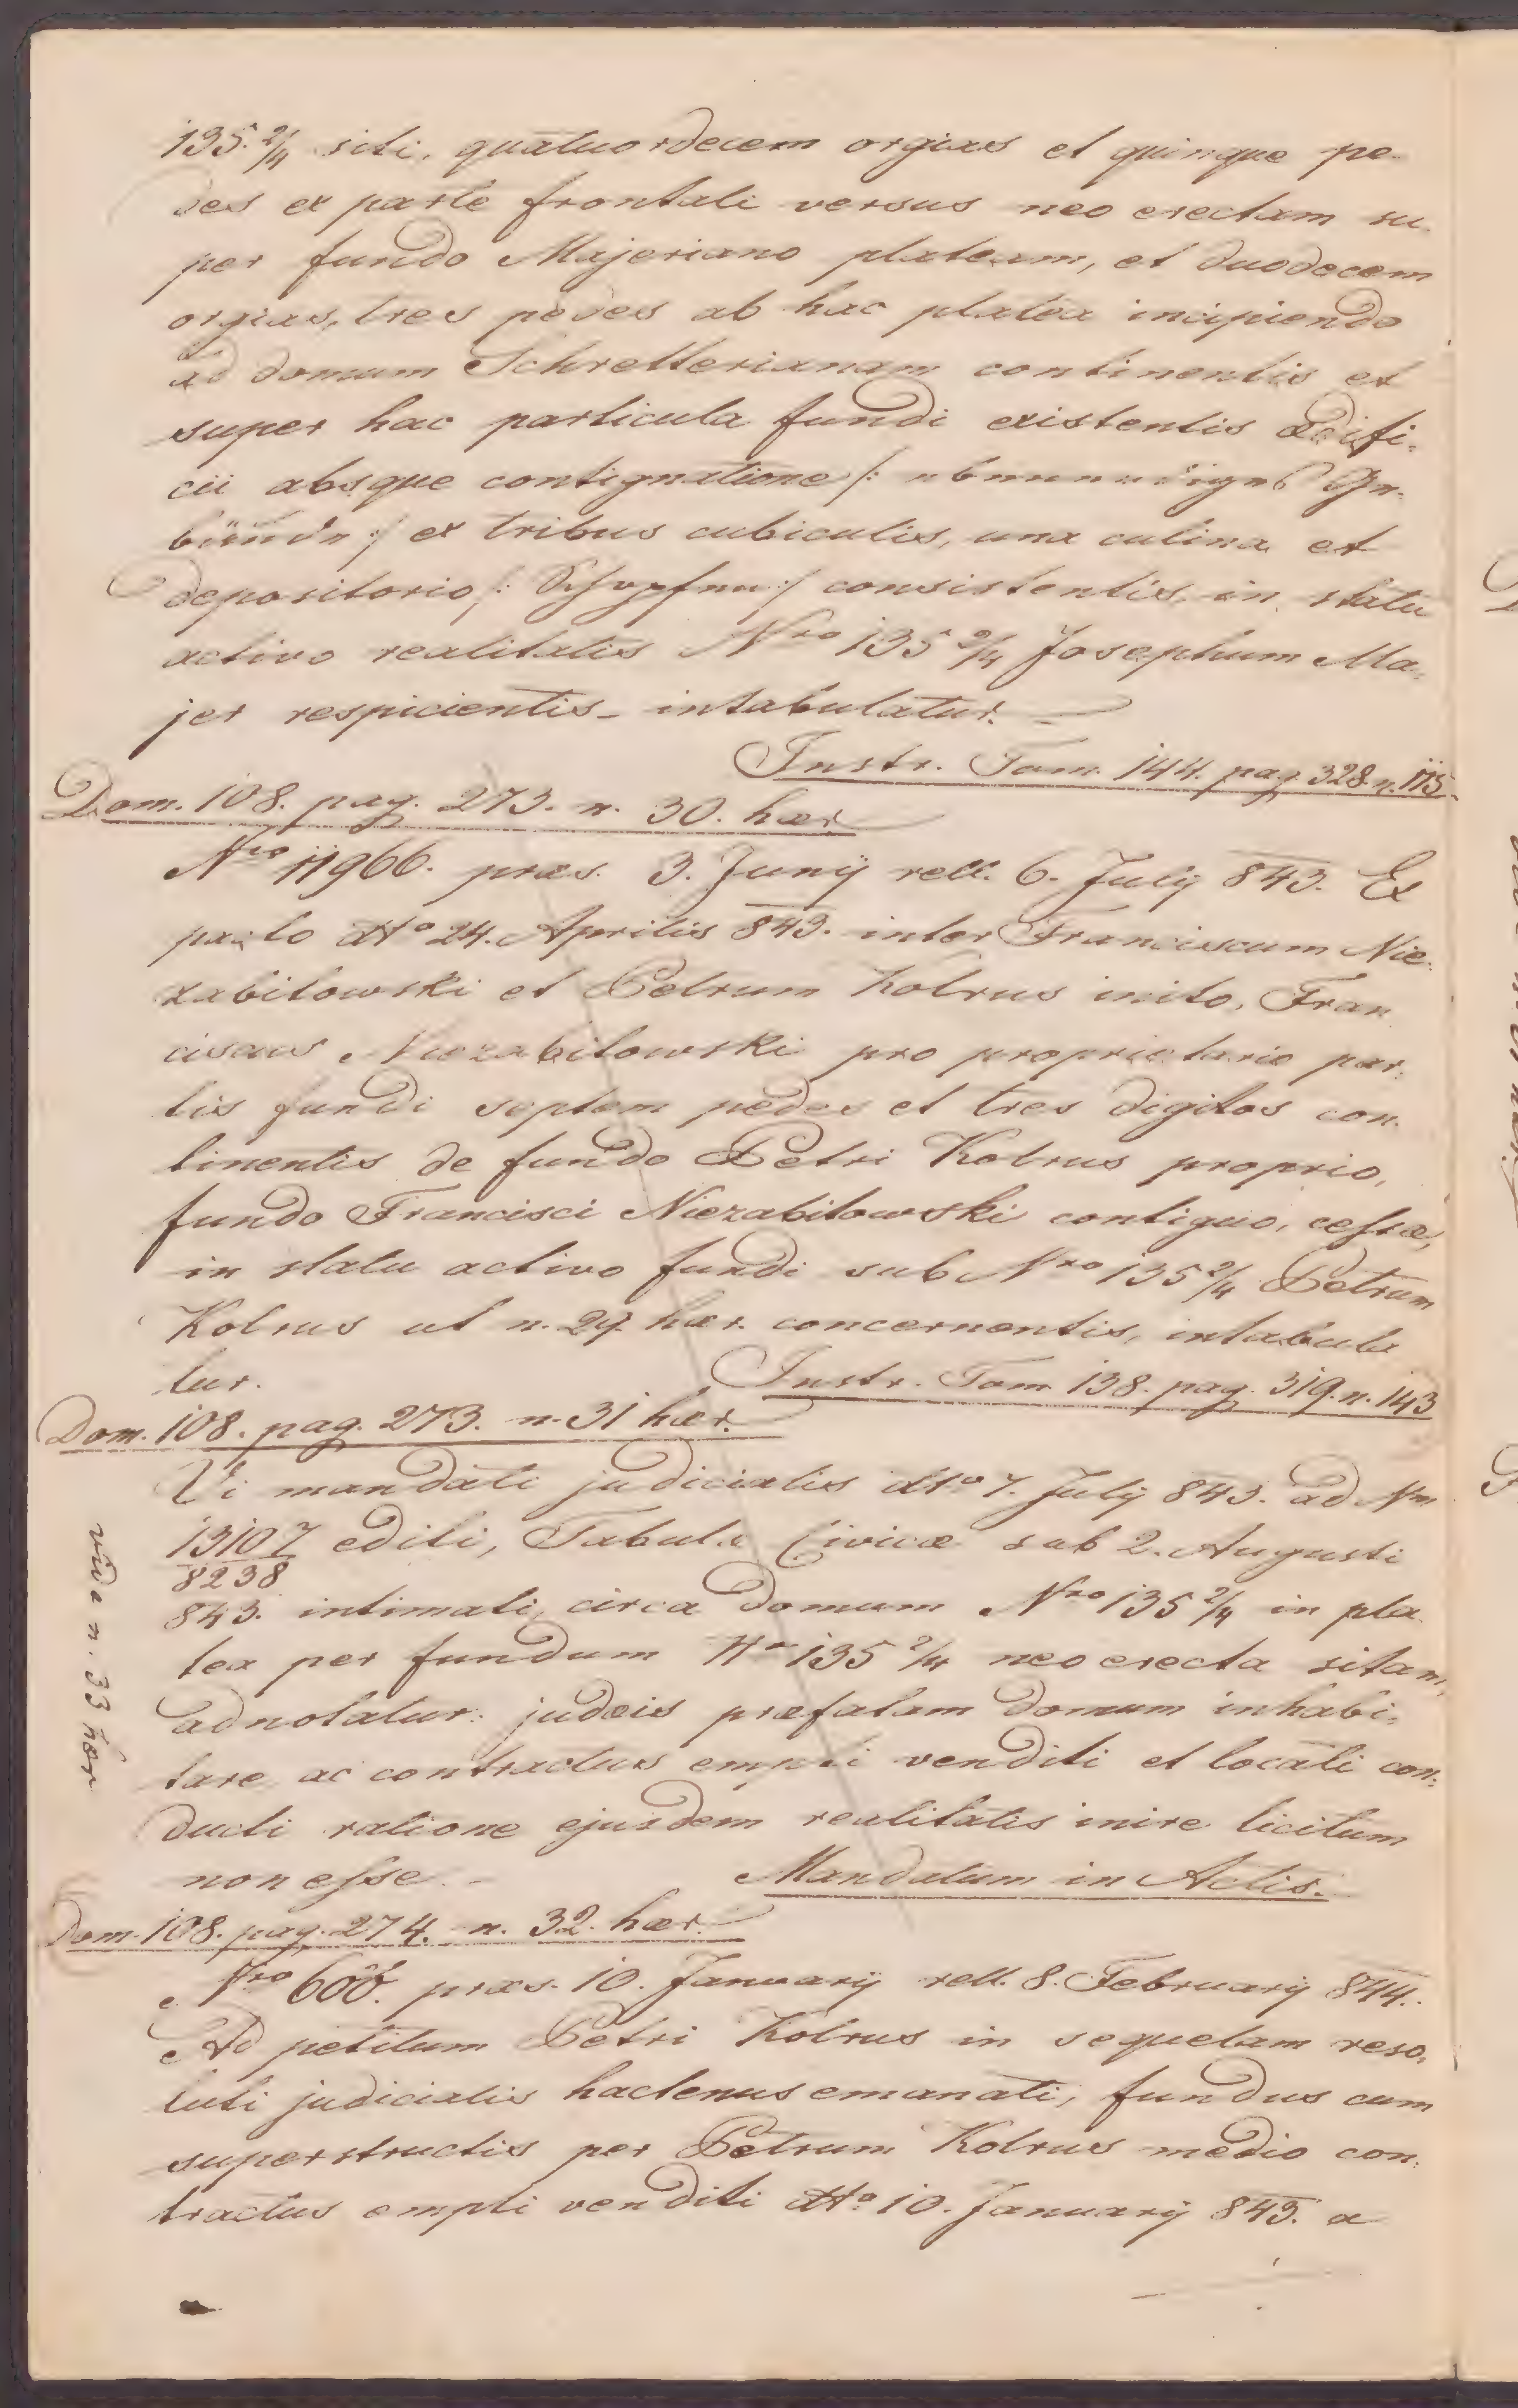 135 2/4 siti, quatuordecem orgias et quinque pe-
des ex parte frontali versus neo erectam su-
per fundo Majeriano plateam, et duodecem
orgias, tres pedes ab hac platea incipiendo
ad domum Schretterianam continentis et
super hac particula fundi existentis ædifi-
cii absque contignatione /: ebenerdiges Ge-
bäude :/ ex tribus cubiculis, una culina et
depositorio /: Schopfen :/ consistentis, in statu
activo realitatis Nro 135 2/4 Josephum Ma-
jer respicientis - intabulatur. -
Instr. Tom. 144. pag 328. n. 175.
Dom. 108. pag. 273. n. 30. hær.
Nro 11966. præs. 3. Junij rell. 6. Julij 843. Ex
pacto dto 24. Aprilis 843. inter Franciscum Nie-
zabitowski et Petrum Kolrus inito, Fran
ciscus Niezabitowski pro proprietario par-
tis fundi septem pedes et tres digitos con-
tinentis de fundo Petri Kolrus proprio,
fundo Francisci Niezabitowski contiguo, cessæ,
in statu activo fundi sub Nro 135 2/4 Petrum
Kolrus ut n. 29 hær. concernentis, intabula
tur.
Instr. Tom 138. pag. 319. n. 143
Dom. 108. pag. 273. n. 31 hær.
Vi mandati judicialis dto 7. Julij 843. ad Nrm
13107/8238 editi, Tabulæ Civicæ sub 2. Augusti
843. intimati, circa domum Nro 135 2/4 in pla-
tea per fundum Nro 135 2/4 neo erecta sitam,
adnotatur: judæis præfatam domum inhabi-
tare, ac contractus empti venditi et locati con-
ducti ratione ejusdem realitatis inire licitum
non esse. -
Mandatum in Actis.
vide n. 33 hær
Dom. 108. pag. 274. n. 32. hær.
Nro 600. præs. 10. Januarij rell. 8. Februarij 844.
Ad petitum Petri Kolrus in sequelam reso-
luti judicialis hactenus emanati, fundus cum
superstructis per Petrum Kolrus medio con-
tractus empti venditi dto 10. Januarij 843. a